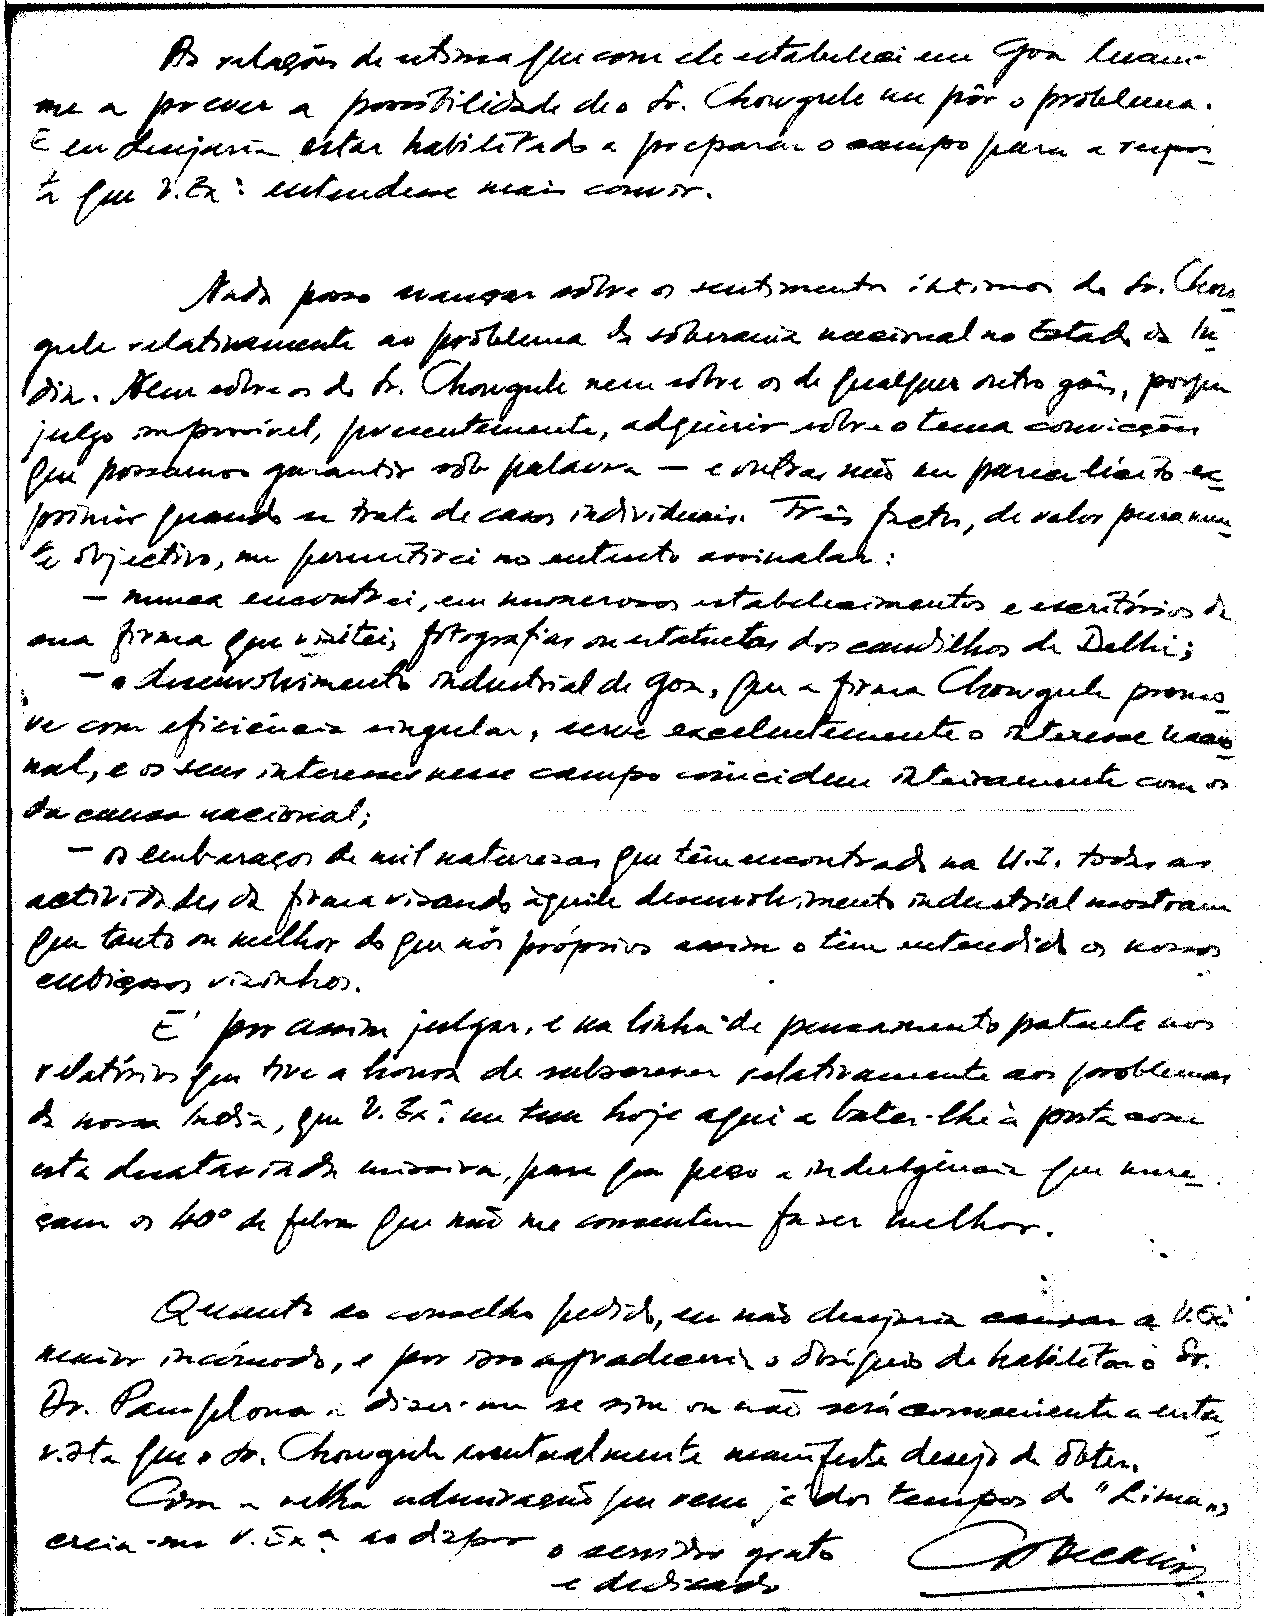 As relações de estima que com ele estabeleci em Goa levam-
me a prever a possibilidade de o Sr. Chowgule me pôr o problema.
E eu desejaria estar habilitado a preparar o campo para a respos-
ta que V. Exª. entendesse mais convir.
Nada posso avançar sôbre os sentimentos íntimos do Sr. Chow-
gule relativamente ao problema da soberania nacional no Estado da Ín-
dia. Nem sôbre os do Sr. Chowgule nem sobre os de qualquer outro goês, porque
julgo impossível, presentemente, adquirir sôbre o tema convicções
que possamos garantir sob palavra — e outras não me parece lícito ex-
primir quando se trata de casos individuais. Três factos, de valor puramen-
te objectivo, me permitirei no entanto assinalar:
— nunca encontrei, em numerosos estabelecimentos e escritórios da
sua firma que visitei, fotografias ou estatuetas dos caudilhos de Delhi;
— o desenvolvimento industrial de Goa, que a firma Chowgule promo-
ve com eficiência singular, serve excelentemente o interesse nacio-
nal, e os seus interesses nesse campo coincidem inteiramente com os
da causa nacional;
— os embaraços de mil naturezas que têm encontrado na U.I. todas as
actividades da firma visando àquele desenvolvimento industrial mostram
que tanto ou melhor do que nós próprios assim o têm entendido os nossos
cubiçosos vizinhos.
É por assim julgar, e na linha de pensamento patente nos
relatórios que tive a honra de subscrever relativamente aos problemas
da nossa India, que V. Exª. me tem hoje aqui a bater-lhe à porta com
esta desataviada missiva, para que peço a indulgência que mere-
çam os 40º de febre que não me consentem fazer melhor.
Quanto ao conselho pedido, eu não desejaria causar a V. Exª
maior incómodo, e por isso agradeceria o obséquio de habilitar o Sr.
Dr. Pamplona a dizer-me se sim ou não será conveniente a entre-
vista que o Sr. Chowgule eventualmente manifeste desejo de obter.
Com a velha admiração que vem já dos tempos do "Lima",
creia-me V. Exª ao dispor
o servidor grato
e dedicado